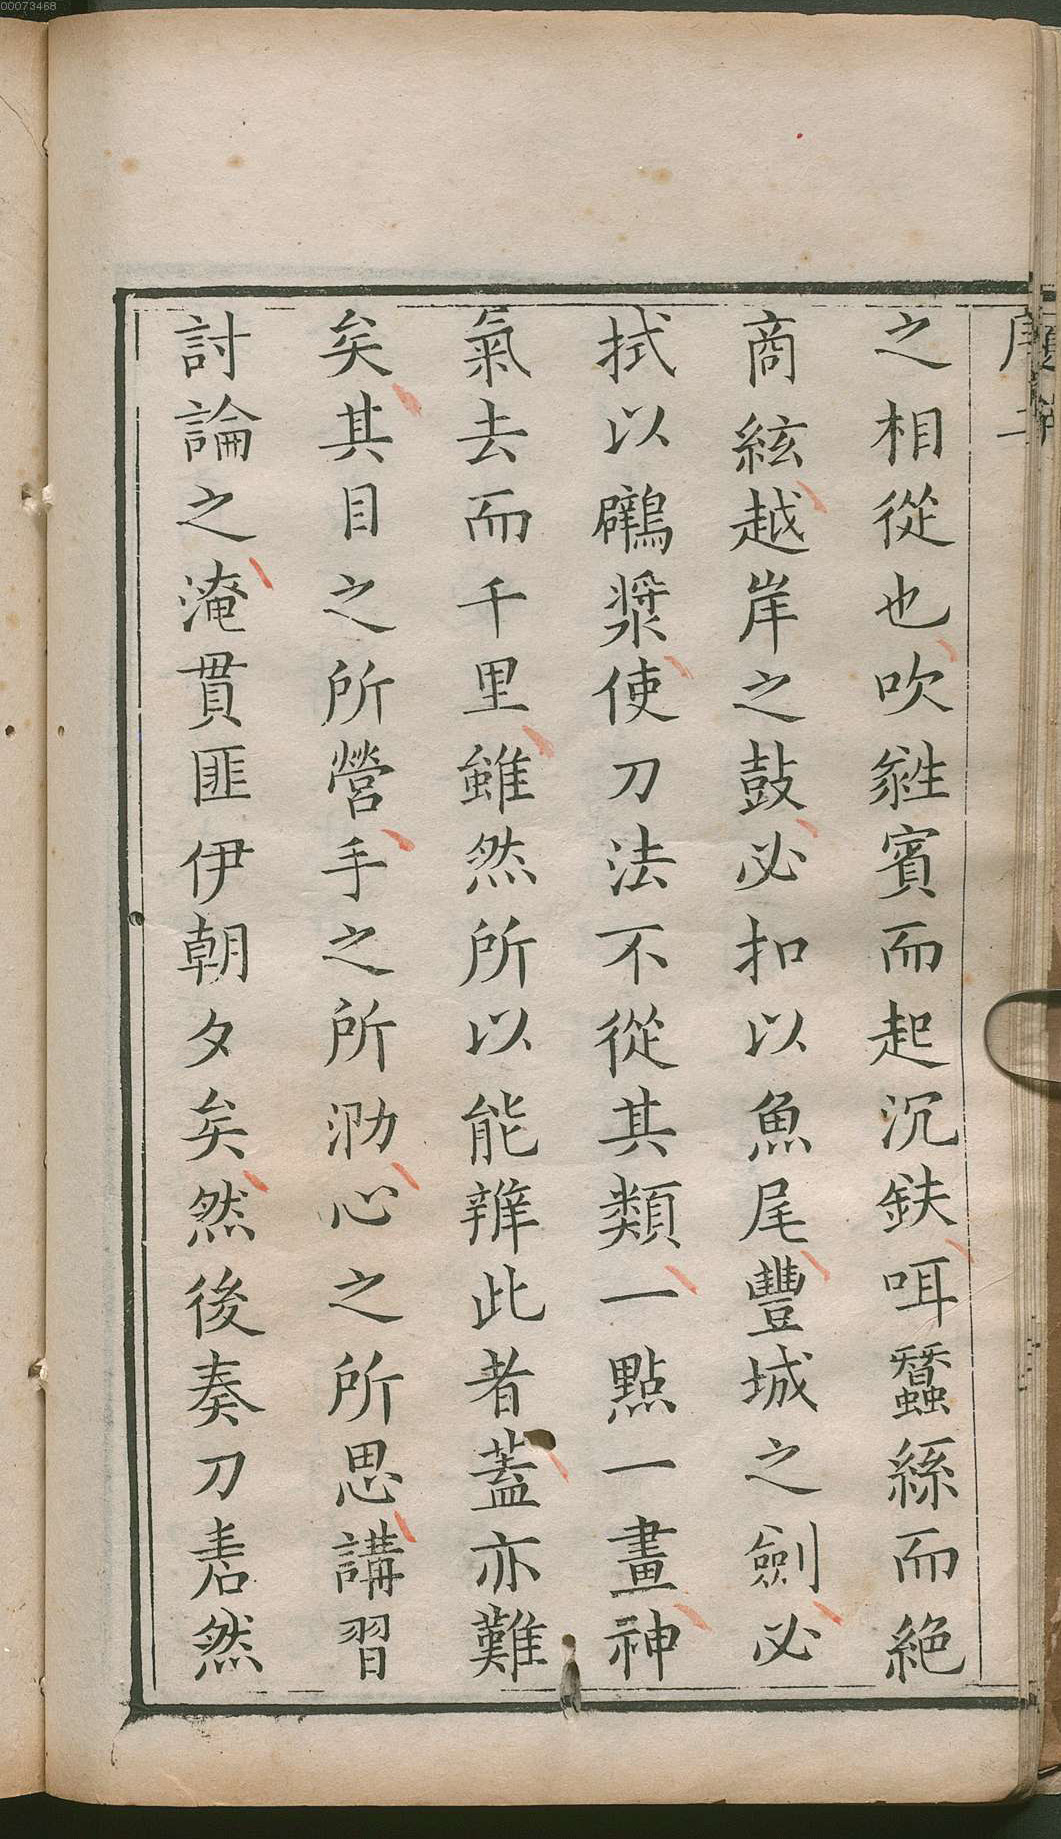 00073468
之相從也吹蕤賓而起沉鈇咡蠶絲而絶
商絃越岸之鼓必扣以魚尾豐城之劍必
拭以鸊漿使刀法不從其類一點一畫神
氣去而千里雖然所以能辨此者蓋亦難
矣其目之所營手之所泐心之所思講習
討論之淹貫匪伊朝夕矣然後奏刀砉然